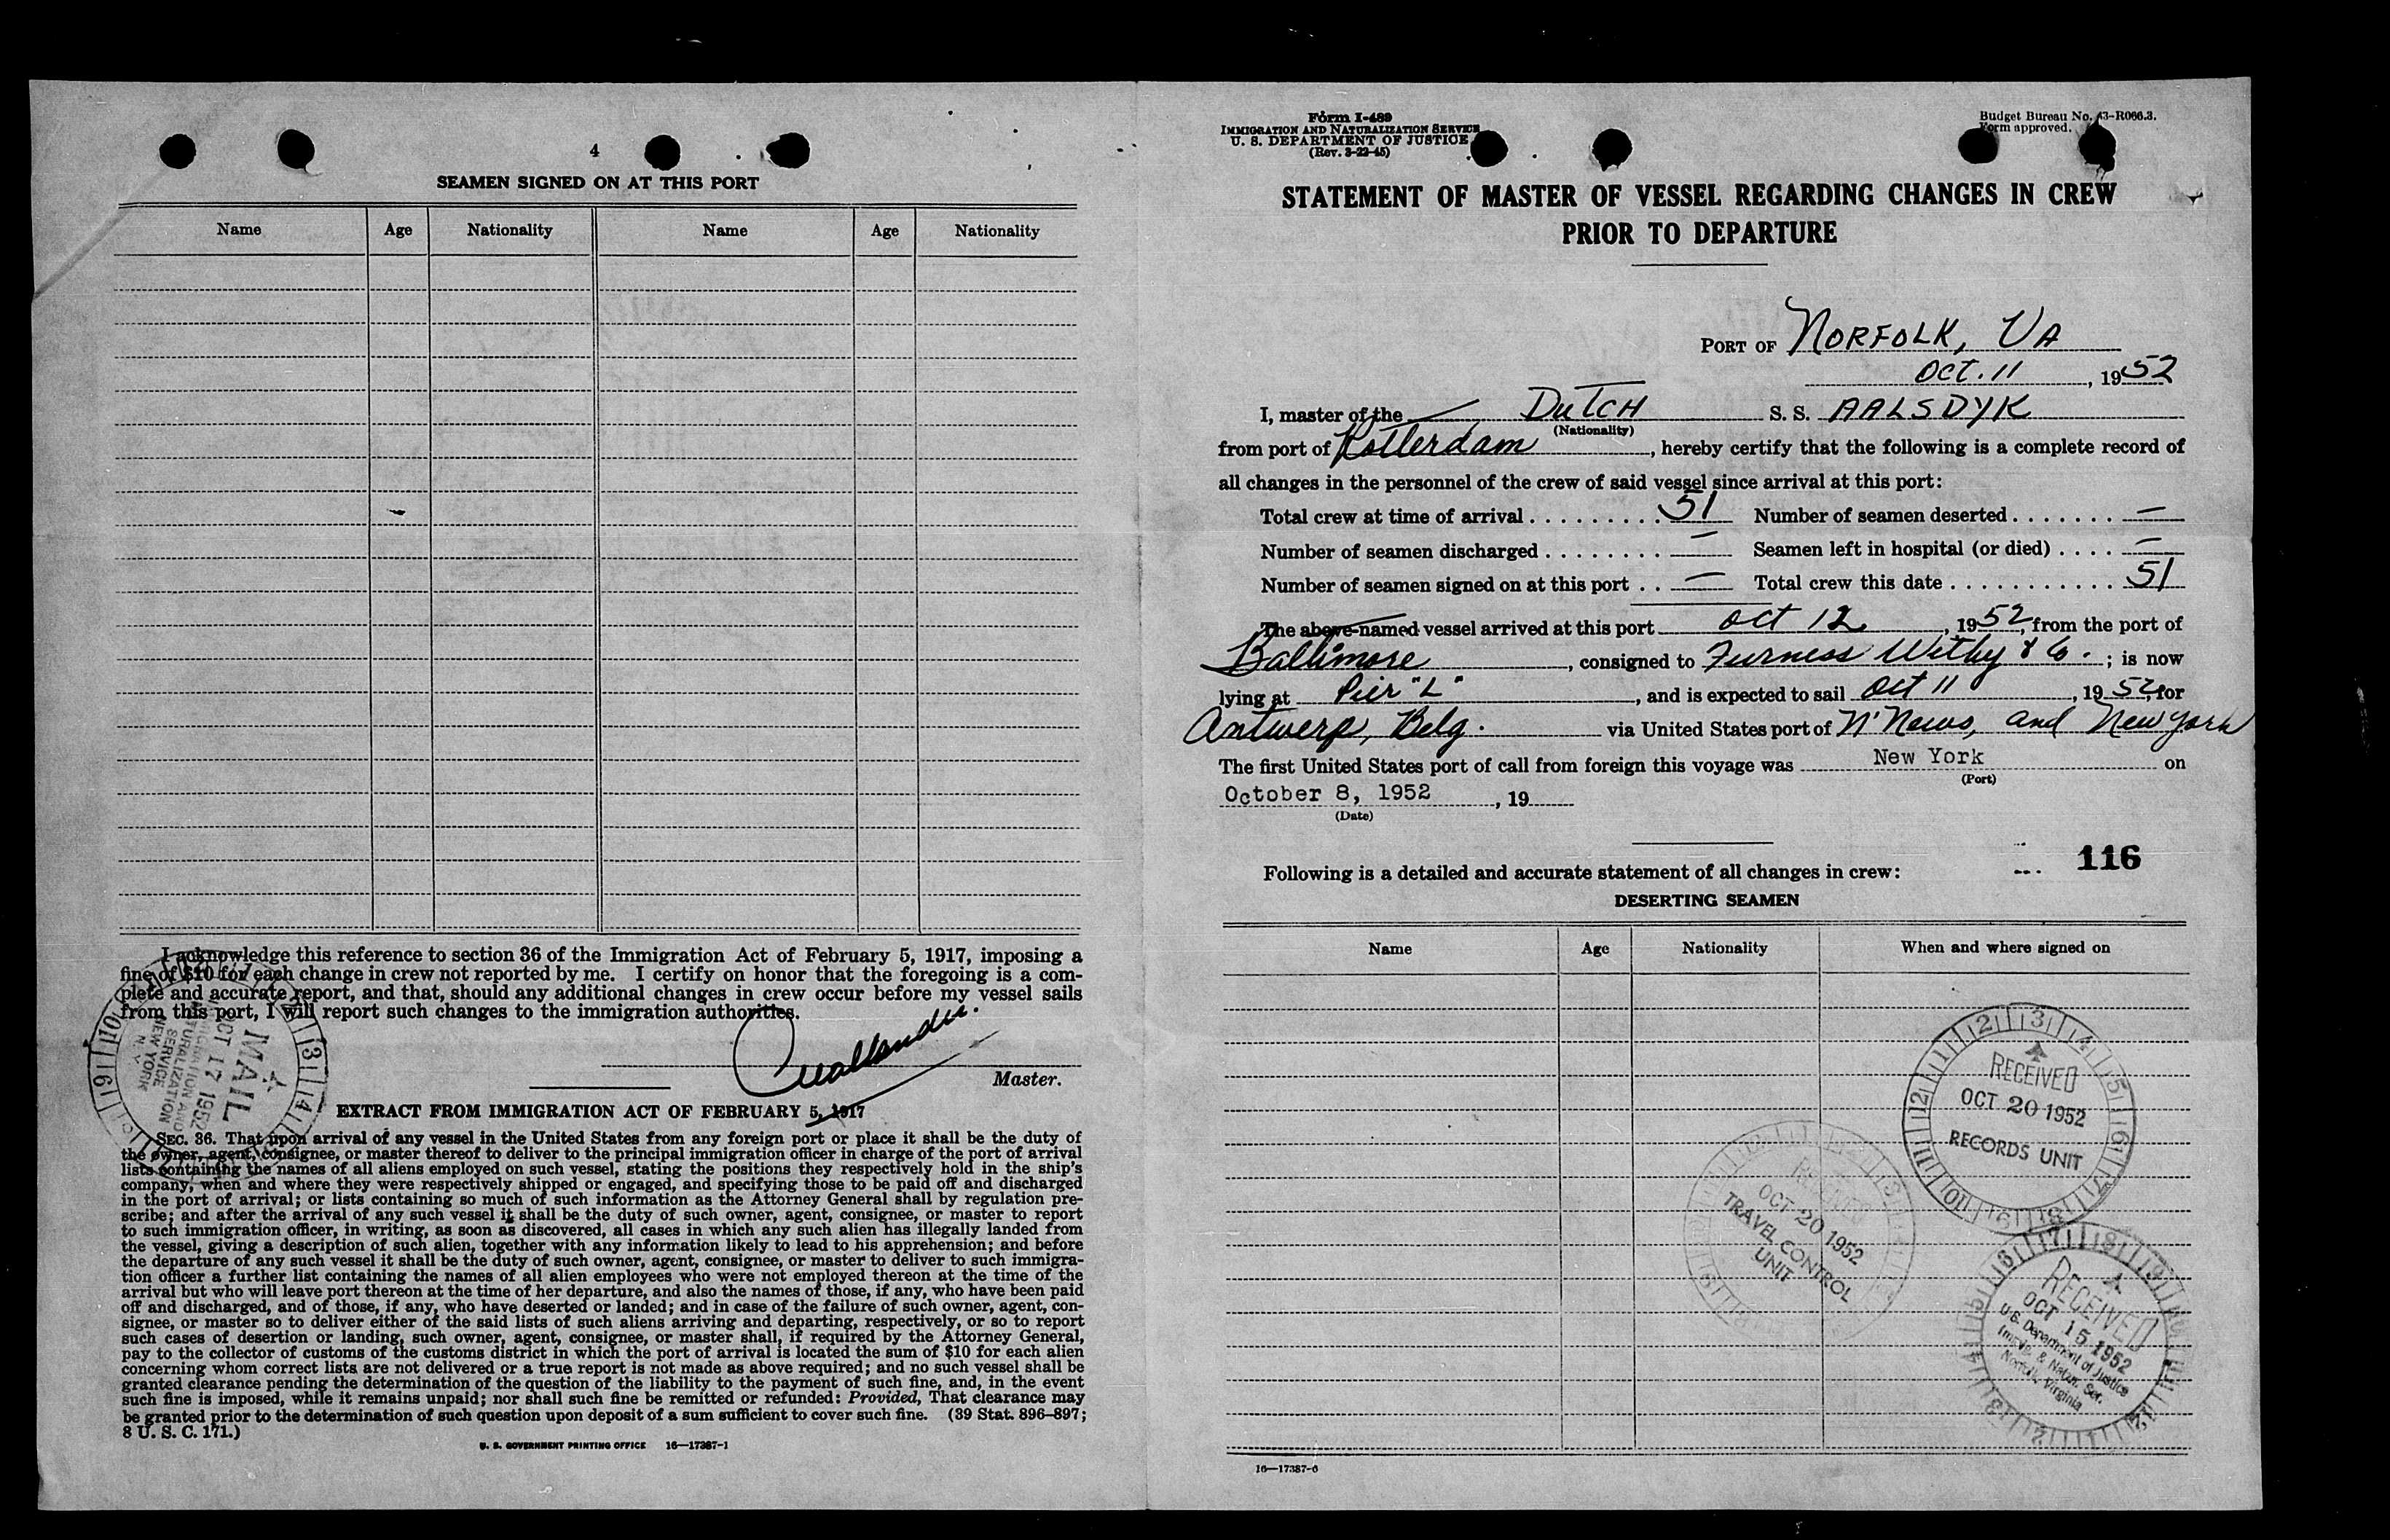 4
SEAMEN SIGNED ON AT THIS PORT
Name Age Nationality Name Age Nationality
I acknowledge this reference to section 36 of the Immigration Act of February 5, 1917, imposing a
fine of $10 for each change in crew not reported by me. I certify on honor that the foregoing is a com-
plete and accurate report, and that, should any additional changes in crew occur before my vessel sails
from this port, I will report such changes to the immigration authorities.
Master.
MAIL
OCT 17 1952
IMMIGRATION AND
NATURALIZATION
SERVICE
NEW YORK
N. Y.
EXTRACT FROM IMMIGRATION ACT OF FEBRUARY 5, 1917
SEC. 36. That upon arrival of any vessel in the United States from any foreign port or place it shall be the duty of
the owner, agent, consignee, or master thereof to deliver to the principal immigration officer in charge of the port of arrival
lists containing the names of all aliens employed on such vessel, stating the positions they respectively hold in the ship's
company, when and where they were respectively shipped or engaged, and specifying those to be paid off and discharged
in the port of arrival; or lists containing so much of such information as the Attorney General shall by regulation pre-
scribe; and after the arrival of any such vessel it shall be the duty of such owner, agent, consignee, or master to report
to such immigration officer, in writing, as soon as discovered, all cases in which any such alien has illegally landed from
the vessel, giving a description of such alien, together with any information likely to lead to his apprehension; and before
the departure of any such vessel it shall be the duty of such owner, agent, consignee, or master to deliver to such immigra-
tion officer a further list containing the names of all alien employees who were not employed thereon at the time of the
arrival but who will leave port thereon at the time of her departure, and also the names of those, if any, who have been paid
off and discharged, and of those, if any, who have deserted or landed; and in case of the failure of such owner, agent, con-
signee, or master so to deliver either of the said lists of such aliens arriving and departing, respectively, or so to report
such cases of desertion or landing, such owner, agent, consignee, or master shall, if required by the Attorney General,
pay to the collector of customs of the customs district in which the port of arrival is located the sum of $10 for each alien
concerning whom correct lists are not delivered or a true report is not made as above required; and no such vessel shall be
granted clearance pending the determination of the question of the liability to the payment of such fine, and, in the event
such fine is imposed, while it remains unpaid; nor shall such fine be remitted or refunded: Provided, That clearance may
be granted prior to the determination of such question upon deposit of a sum sufficient to cover such fine. (39 Stat. 896–897;
8 U. S. C. 171.)
U. S. GOVERNMENT PRINTING OFFICE 16—17387-1
Form I-489
IMMIGRATION AND NATURALIZATION SERVICE
U. S. DEPARTMENT OF JUSTICE
(Rev. 3-22-45)
Budget Bureau No. 43-R066.3.
Form approved.
STATEMENT OF MASTER OF VESSEL REGARDING CHANGES IN CREW
PRIOR TO DEPARTURE
PORT OF NORFOLK, VA
OCT. 11, 1952
I, master of the — DUTCH S. S. AALSDYK
(Nationality)
from port of Rotterdam, hereby certify that the following is a complete record of
all changes in the personnel of the crew of said vessel since arrival at this port:
Total crew at time of arrival . . . . . . . . . 51 Number of seamen deserted . . . . . . . —
Number of seamen discharged . . . . . . . . — Seamen left in hospital (or died) . . . . —
Number of seamen signed on at this port . . — Total crew this date . . . . . . . . . . . 51
The above-named vessel arrived at this port Oct 12, 1952, from the port of
Baltimore, consigned to Furness Withy & Co. ; is now
lying at Pier "L", and is expected to sail Oct 11, 1952, for
Antwerp, Belg. via United States port of N'News, and New York
The first United States port of call from foreign this voyage was New York on
(Port)
October 8, 1952, 19
(Date)
116
Following is a detailed and accurate statement of all changes in crew:
DESERTING SEAMEN
Name Age Nationality When and where signed on
RECEIVED
OCT 20 1952
RECORDS UNIT
RECEIVED
OCT 20 1952
TRAVEL CONTROL
UNIT
RECEIVED
OCT 15 1952
U.S. Department of Justice
Immig. & Natur. Ser.
Norfolk, Virginia
16—17387-6